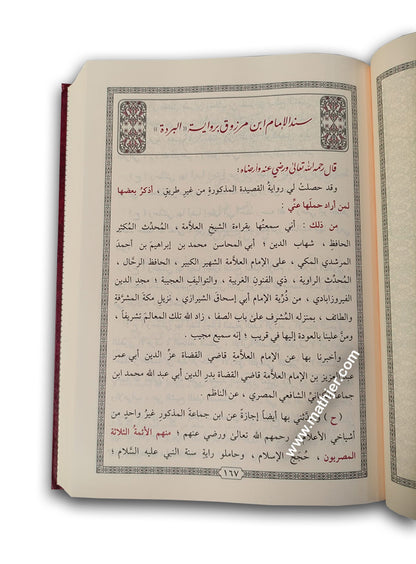 سند الإمام ابن مرزوق برواية «البردة»
قال رحمه الله تعالى ورضي عنه وأرضاه:
وقد حصلت لي روايةُ القصيدة المذكورةِ من غير طريقٍ، أذكرُ بعضها
لمن أراد حملَها عنّي:
من ذلك: أني سمعتُها بقراءة الشيخ العلاَّمة، المُحدِّث المُكثر
الحافظ، شهاب الدين؛ أبي المحاسن محمد بن إبراهيمَ بن أحمدَ
المرشدي المكي، على الإمام العلاَّمة الشهير الكبير، الحافظ الرحَّال،
المُحدِّث الراوية، ذي الفنون الغريبة، والتواليف العجيبة؛ مجد الدين
الفيروزابادي، من ذُرِّية الإمام أبي إسحاقَ الشيرازي، نزيلِ مكةَ المشرَّفةِ
والطائف، بمنزله المُشرِف علىٰ باب الصفا، زاد الله تلك المعالمَ تشريفاً،
ومنَّ علينا بالعودة إليها في قريب؛ إنه سميع مجيب.
وأخبرنا بها عن الإمام العلاَّمةِ قاضي القضاة عزِّ الدين أبي عمر
عبد العزيز بن الإمام العلاَّمة قاضي القضاة بدرِ الدين أبي عبد الله محمد ابن
جماعةَ الشافعي المصري، عن الناظم.
(ح) وحدَّثني بها أيضاً إجازةً عن ابن جماعةَ المذكور غيرُ واحدٍ من
أشياخي الأعلام رحمهم الله تعالىٰ ورضي عنهم؛ منهم الأئمةُ الثلاثة
المصريون، حُجَجُ الإسلام، وحاملو رايةِ سنة النبي عليه السَّلام؛
١٦٧
www.mathjer.com